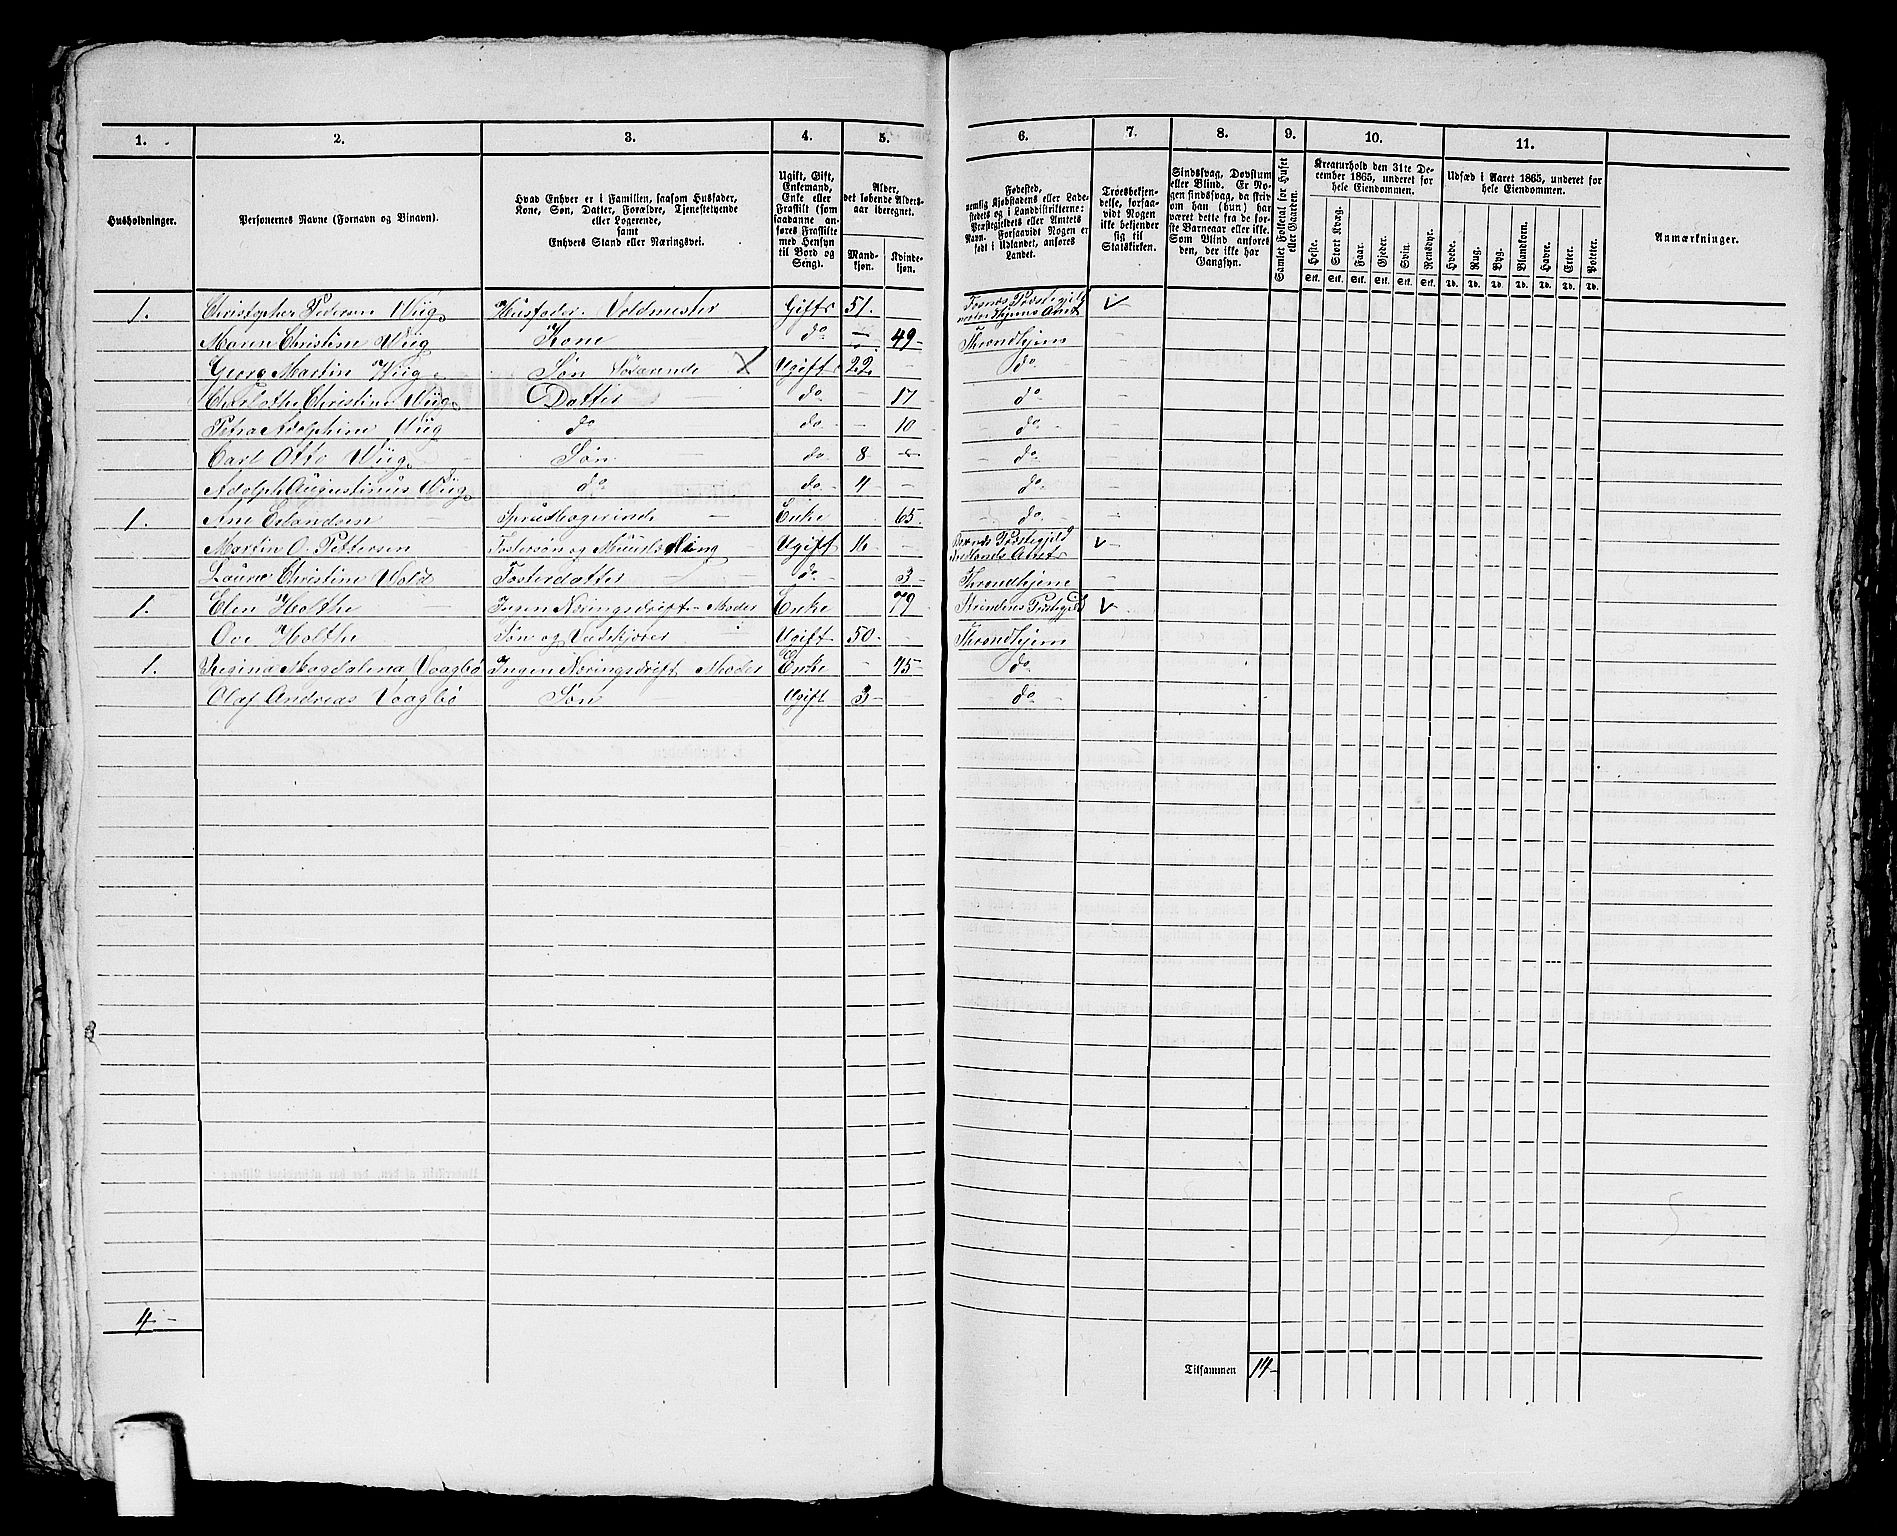 1. 2. 3. 4. 5. 6. 7. 8. 9. 10. 11.
Husholdninger.
Personernes Navne (Fornavn og Binavn).
Hvad Enhver er i Familien, saasom Husfader,
Kone, Søn, Datter, Forældre, Tjenestetyende
eller Logerende,
samt
Enhvers Stand eller Næringsvei.
Ugift, Gift,
Enkemand,
Enke eller
Fraskilt (som
saadanne an-
føres Fraskilte
med Hensyn
til Bord og
Seng).
Alder,
det løbende Alders-
aar iberegnet.
Mand-
kjøn.
Kvinde-
kjøn.
Fødested,
nemlig Kjøbstadens eller Lade-
stedets og i Landdistrikterne:
Præstegjeldets eller Amtets
Navn. Forsaavidt Nogen er
født i Udlandet, anføres
Landet.
Troesbekjen-
delse, forsaa-
vidt Nogen
ikke bekjender
sig til
Statskirken.
Sindssvag, Døvstum
eller Blind. Er No-
gen sindssvag, da skriv
om han (hun) har
været dette fra de før-
ste Barneaar eller ikke.
Som Blind anføres
den, der ikke har
Gangsyn.
Samlet Folketal for Huset
eller Gaarden.
Kreaturhold den 31te De-
cember 1865, underet for
hele Eiendommen.
Heste. Stort Kvæg. Faar. Gjeder. Svin. Rensdyr.
Stk. Stk. Stk. Stk. Stk. Stk.
Udsæd i Aaret 1865, underet for
hele Eiendommen.
Hvede. Rug. Byg. Blandkorn. Havre. Erter. Poteter.
Td. Td. Td. Td. Td. Td. Td.
Anmærkninger.
1. Christopher Pedersen Wiig Husfader. Voldmester Gift 51. Fosnes Præstegjeld
Amt
Maren Christine Wiig Kone do 49 Throndhjem
Georg Martin Wiig Søn Søfarende Ugift 22 do
Charlotte Christine Wiig Datter do 17 do
Petra Adolphine Wiig do do 10 do
Carl Otto Wiig Søn do 8 do
Adolph Augustinus Wiig do do 4 do
1. Ane Erlandsen Enke 65 do
Martin O. Pettersen Fostersøn og Ugift 16 Præstegjeld
Nordlands Amt
Laura Christine Wold Fosterdatter do 3 Throndhjem
1. Elen Holthe Ingen Næringsdrift Moder Enke 79 Strindens Præstegjeld
Ove Holthe Søn og Vedskjører Ugift 50 Throndhjem
1. Regina Magdalena Vaagbø Ingen Næringsdrift Moder Enke 45 do
Olaf Andreas Vaagbø Søn Ugift 3 do
4
Tilsammen 14